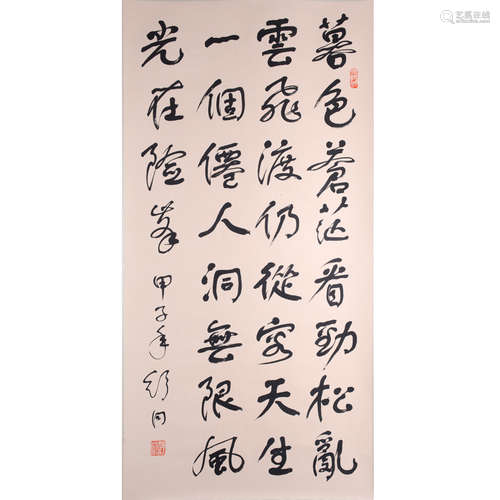 暮色蒼茫看勁松亂
雲飛渡仍從容天生
一個僊人洞無限風
光在險峯 甲子年 舒同